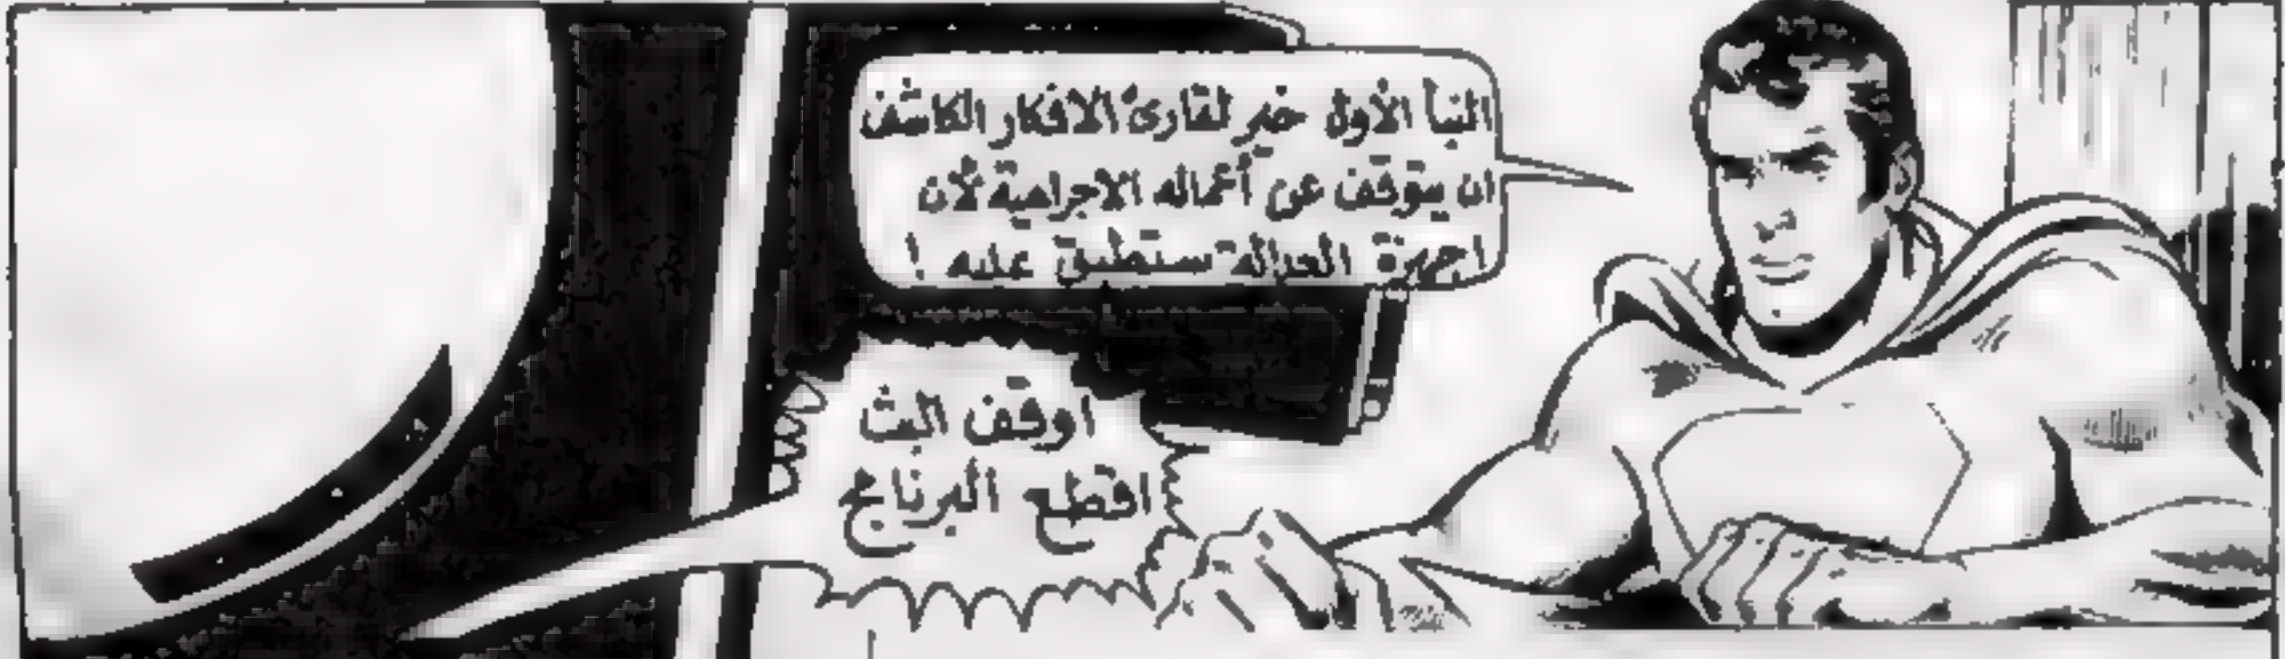 النبأ الأول خير لقارئ الافكار الكاشف
ان يتوقف عن أعماله الاجرامية لأن
اجهزة العدالة ستطبق عليه !
اوقف البث
اقطع البرنامج